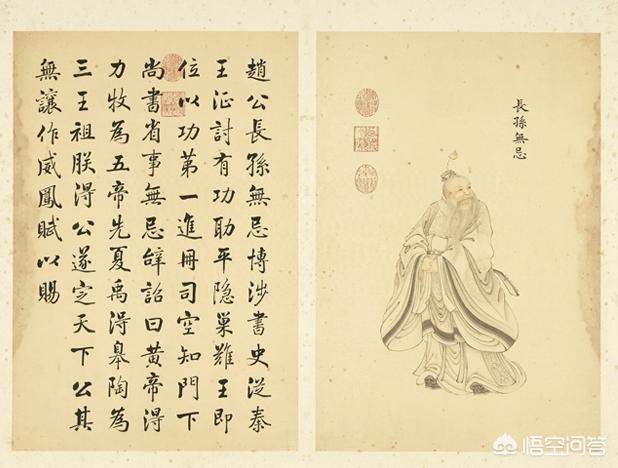 趙公長孫無忌博涉書史從秦
王征討有功助平隐巢難王即
位以功第一進冊司空知門下
尚書省事無忌辭詔曰黄帝得
力牧為五帝先夏禹得皋陶為
三王祖朕得公遂定天下公其
無讓作威鳳賦以賜
長孫無忌
悟空问答